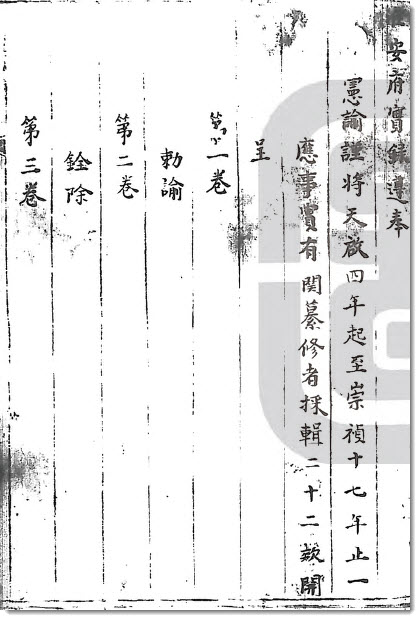 安府實錄遵奉
憲諭謹將天啟四年起至崇禎十七年止一
應事實有関纂修者採輯二十二款開
呈
第一卷
勅諭
第二卷
銓除
第三卷